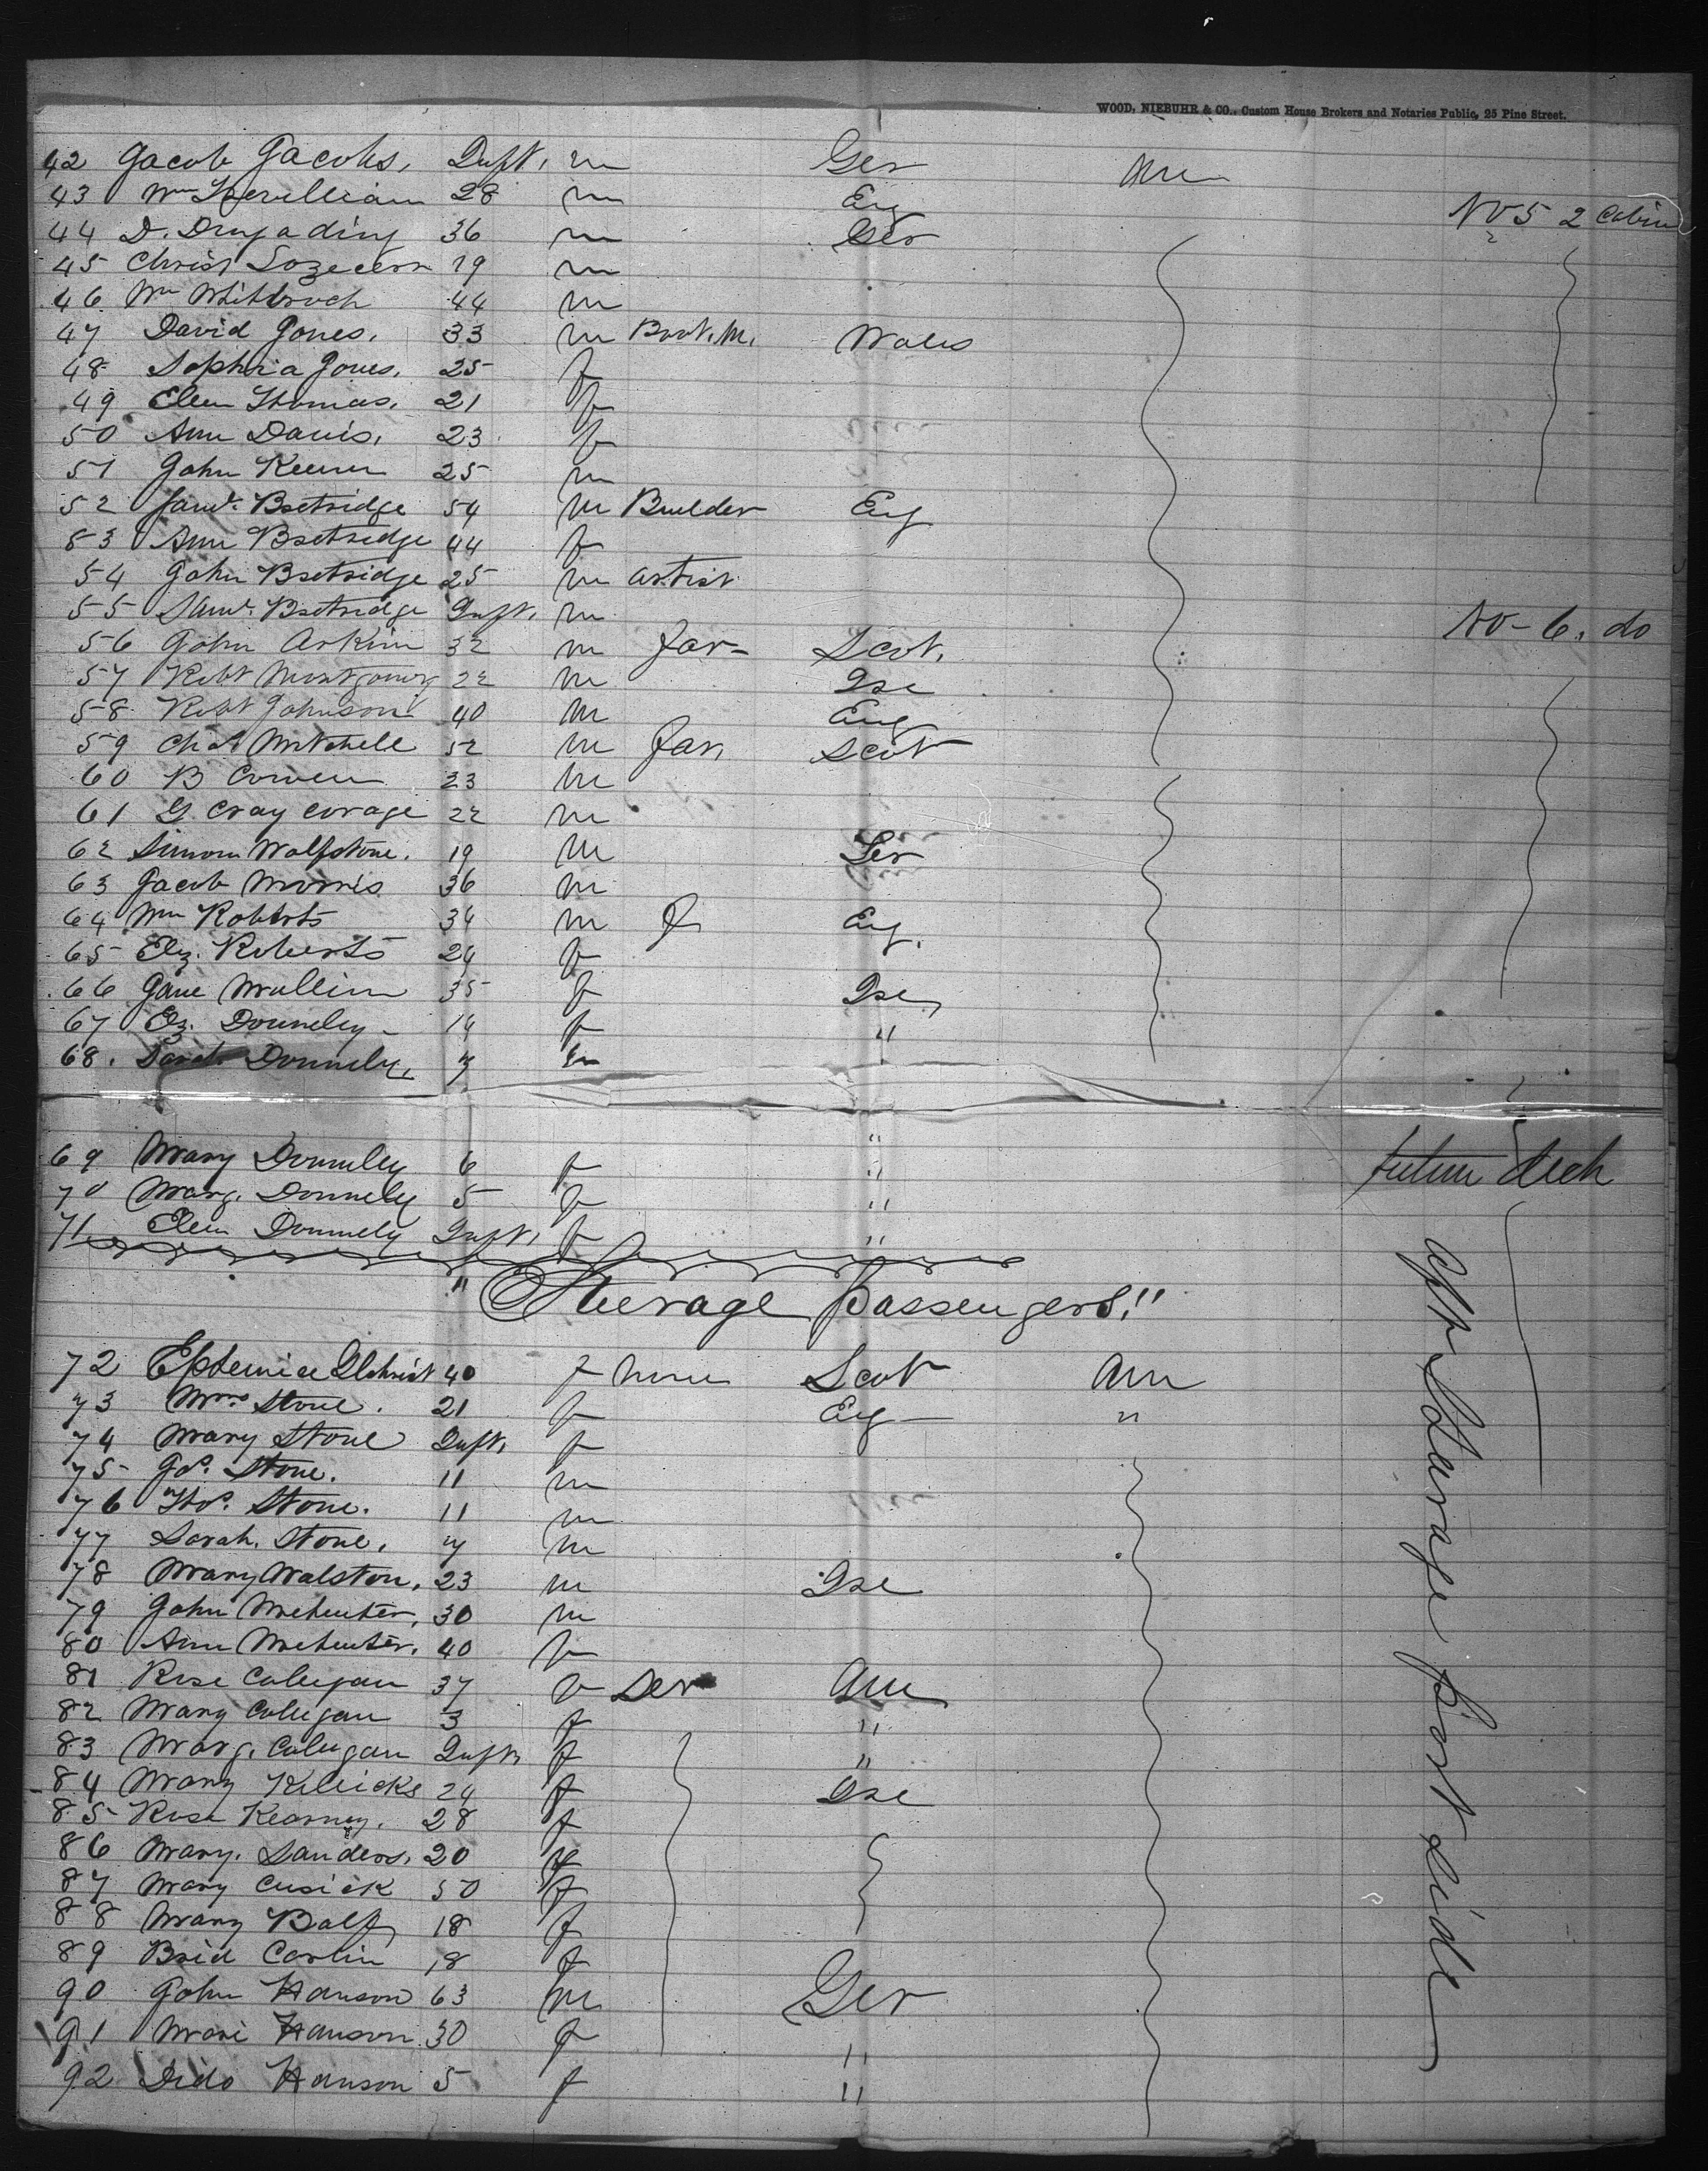 WOOD, NIEBUHR & CO., Custom House Brokers and Notaries Public, 25 Pine Street.
42 Jacob Jacobs, Inft. m Ger Am
43 Wm Trevilliam 28 m Eng No 5 2 Cabin
44 D. 36 m Ger
45 Christ 19 m
46 Wm 44 m
47 David Jones. 33 m Boot. M. Wales
48 Sophia Jones. 25 f
49 Ellen Thomas. 21 f
50 Ann Davis. 23 f
51 John 25 m
52 Saml. Bsetridge 54 m Builder Eng
83 Ann Bsetridge 44 f
54 John Bsetridge 25 m artist
55 Saml. Bsetridge Inft. m No- 6. do
56 John Arkim 32 m far- Scot.
57 Robt Montgomery 22 m Ire
58 Robt Johnson 40 m Eng
59 Chas Mitchell 52 m far, Scot
60 B Cowen 23 m
61 G Cray corage 22 m
62 Simon Wolfstone. 19 m Ger
63 Jacob Morris 36 m
64 Wm Roberts 34 m f Eng.
65 Elz. Roberts 24 f
66 Jane Mullin 35 f Ire
67 Ez. Donneley - 14 f "
68. Sarah Donnely, 7 "
69 Mary Donnley 6 f "
70 Marg. Donnely 5 f "
71 Elen Donnely Inft. f "
" Steerage passengers!"
72 40 f none Scot Am
73 Mrs Stone. 21 f Eng - "
74 Mary Stone Inft. f
75 Js. Stone. 11 m
76 Tho. Stone. 11 m
77 Sarah. Stone. 7 m
78 Mary Walston. 23 m Ire
79 John Mchenter. 30 m
80 Ann Mchenter. 40 f
81 Rose Colligan 37 f Ser Am
82 Mary Colligan 3 f "
83 Marg. Colligan Inft f "
84 Mary Killicks 24 f Ire
85 Rose Kearney. 28 f
86 Mary. Sanders. 20 f
87 Mary Cusick 50 f
88 Mary Balf 18 f
89 Brid Carlin 18 f
90 John Hanson 63 m Ger
91 Mari Hanson 30 f "
92 Dido Hanson 5 f "
deck
Aft Stearage port side